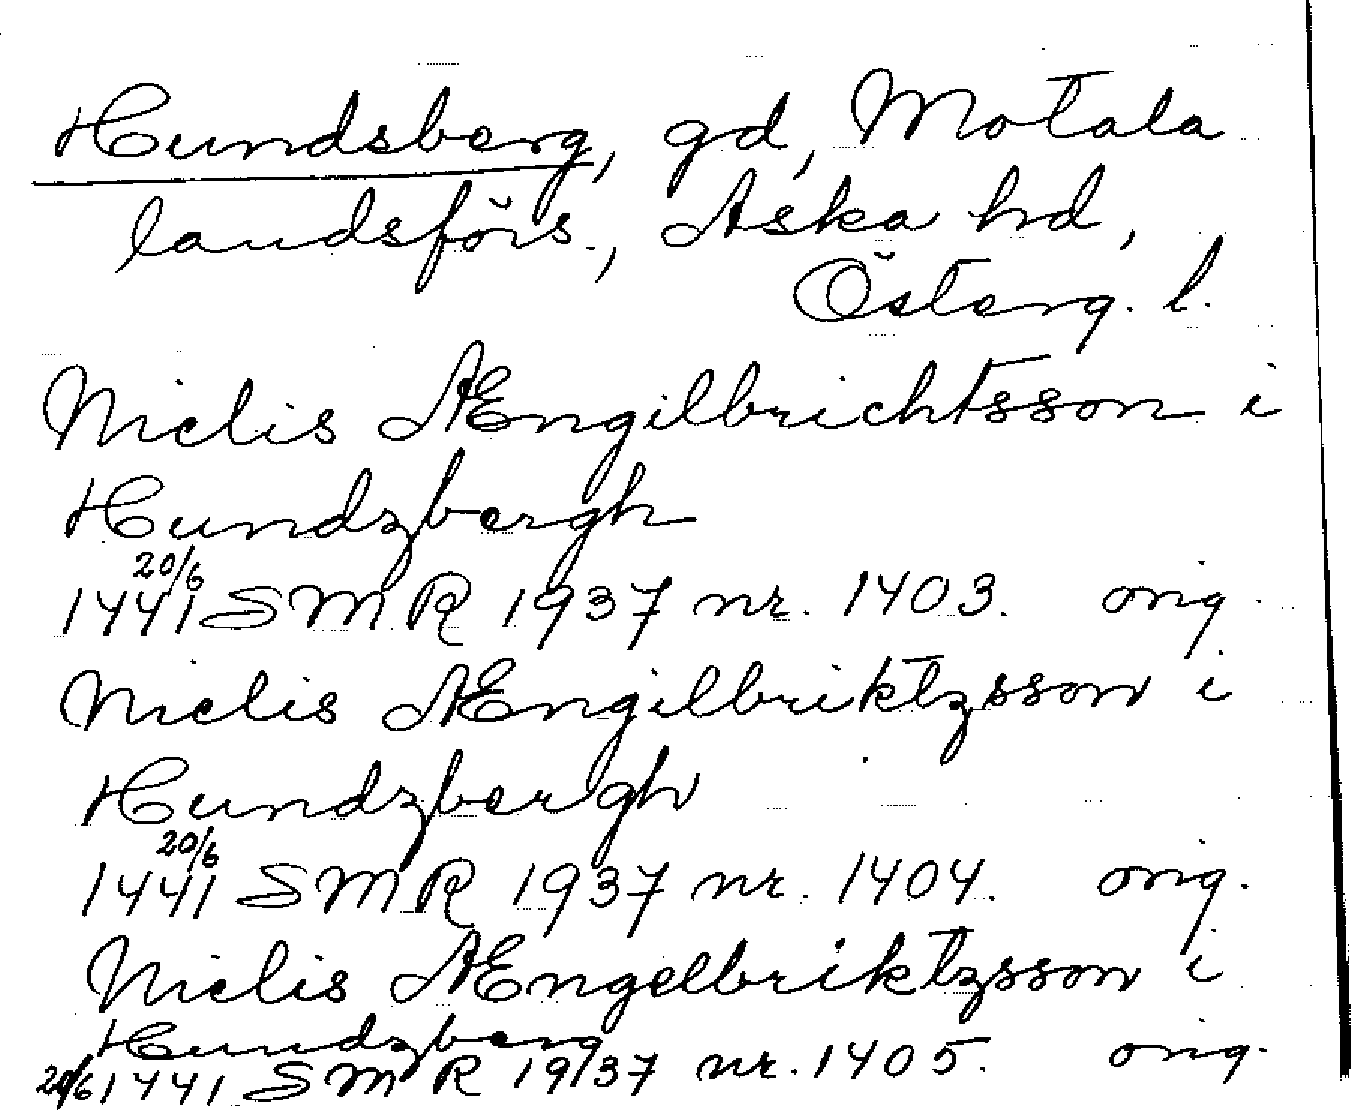 Hundsberg, gd, Motala
landsförs., Aska hd,
Österg. l.
Nielis Ængilbrichtsson i
Hundzbergh
20/6
1441 SMR 1937 nr. 1403. orig.
Nielis Ængilbriktzsson i
Hundzbergh
20/6
1441 SMR 1937 nr. 1404. orig.
Nielis Ængelbriktzsson i
Hundzberg
20/6 1441 SMR 1937 nr. 1405. orig.